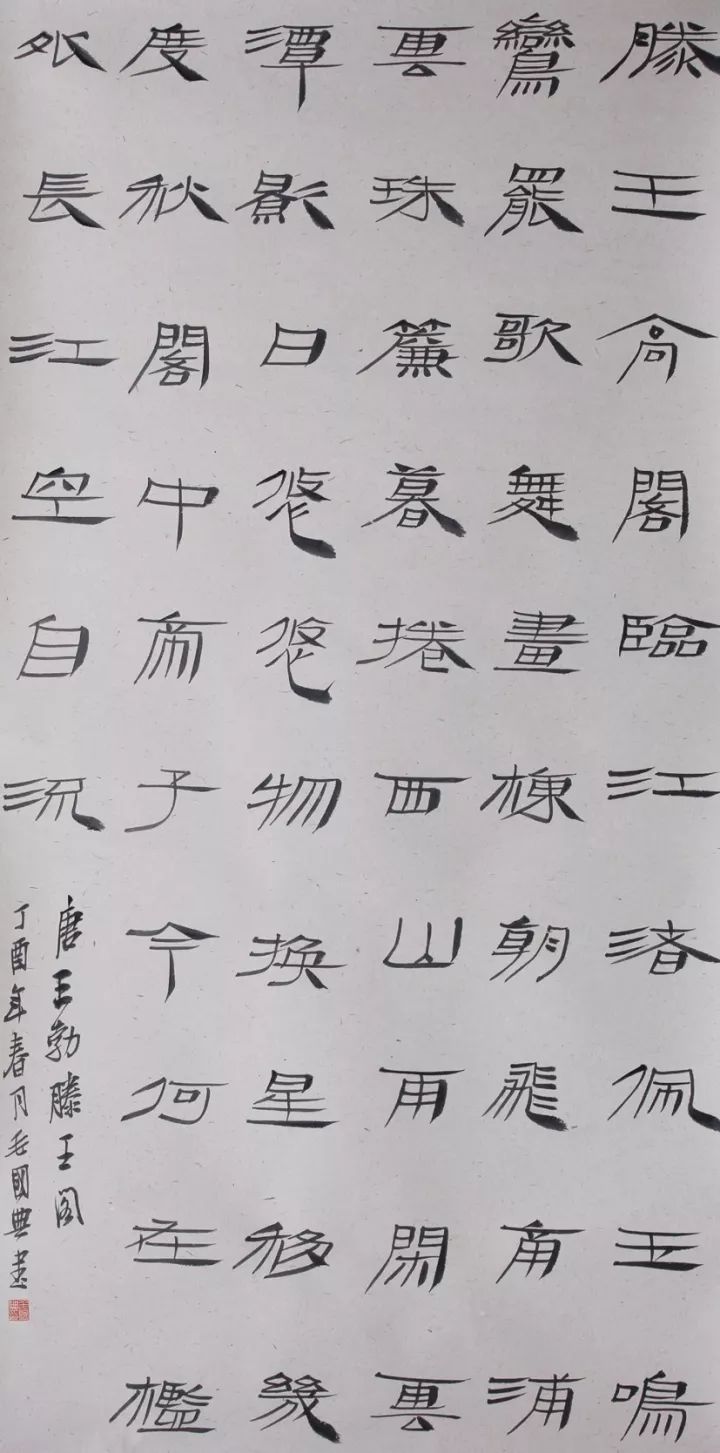 滕王高閣臨江渚佩玉鳴
鸞罷歌舞畫棟朝飛南浦
雲珠簾暮捲西山雨閑雲
潭影日悠悠物換星移幾
度秋閣中帝子今何在檻
外長江空自流
唐王勃滕王阁
丁酉年春月毛國典書